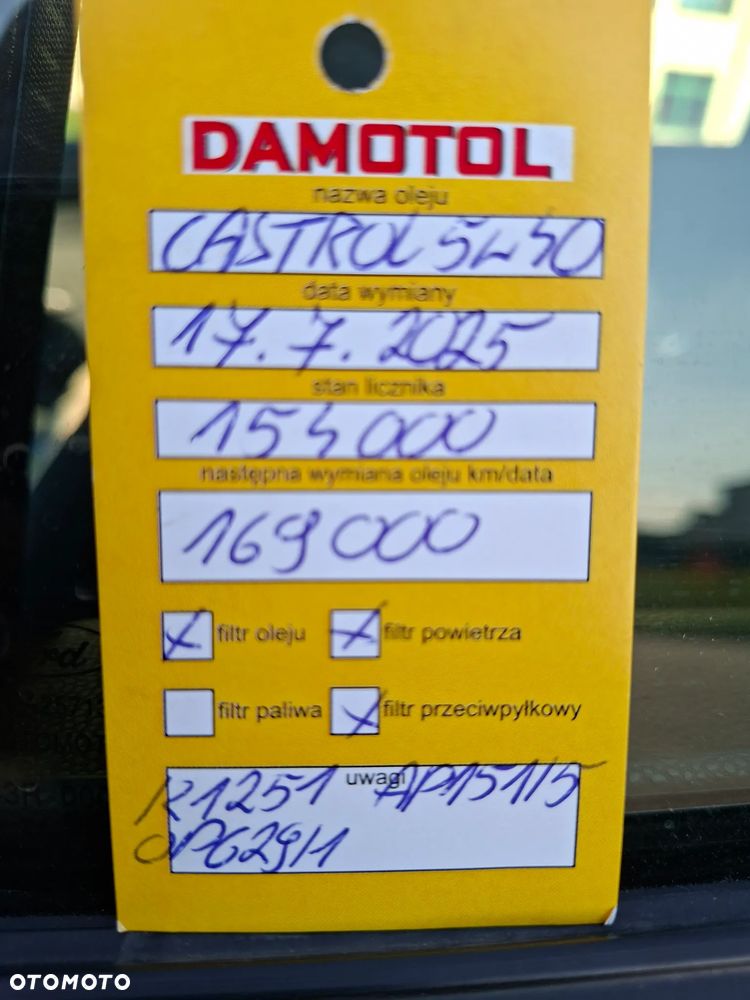 DAMOTOL
nazwa oleju
CASTROL 5W40
data wymiany
17.7.2025
stan licznika
154000
następna wymiana oleju km/data
169000
filtr oleju filtr powietrza
filtr paliwa filtr przeciwpyłkowy
uwagi
K1251 AP151/5
OP629/1
OTOMOTO